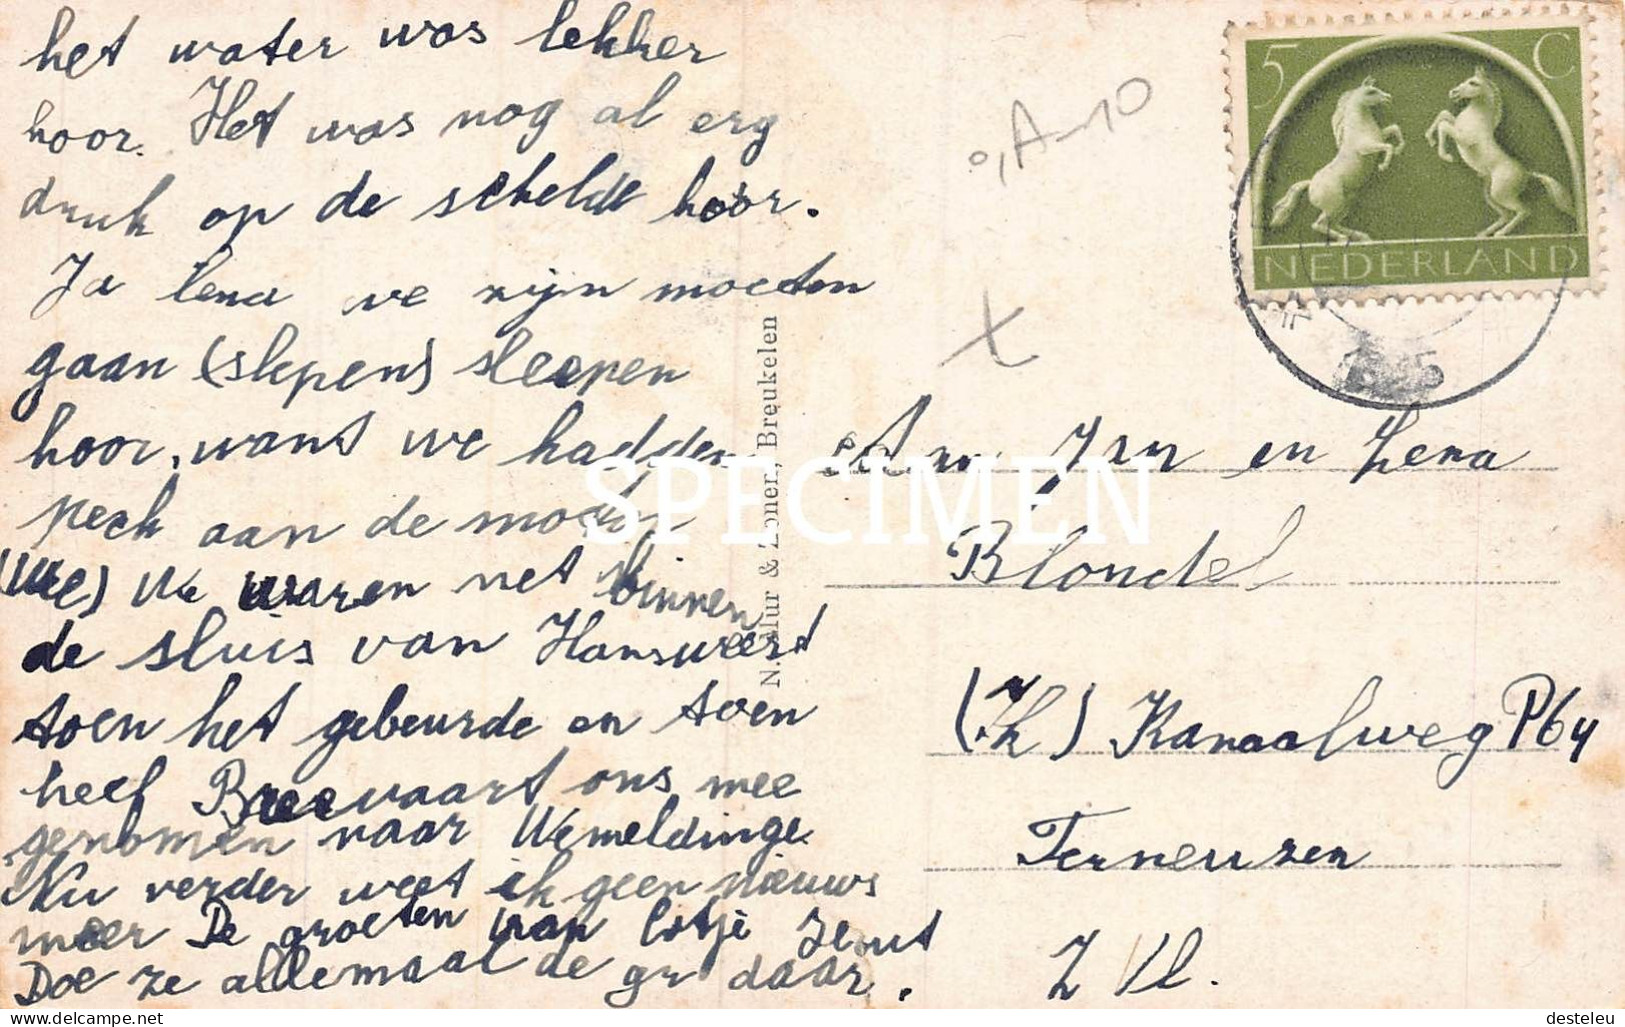 het water was lekker
hoor. Het was nog al erg
druk op de schelde hoor.
Ja lena we zijn moeten
gaan (slepen) sleepen
hoor, want we hadden
peck aan de
(We) We waren net binnen
de sluis van Hansweerd
toen het gebeurde en toen
heef Breevaart ons mee
genomen naar Wemeldinge
Nu verder weet ik geen nieuws
meer De groeten van
Doe ze allemaal de gr daar.
N. Lur & Zonen, Breukelen
SPECIMEN
5 C
NEDERLAND
Aan Jan en Lena
Blondel
Kanaalweg P64
Terneuzen
Z Vl.
desteleu